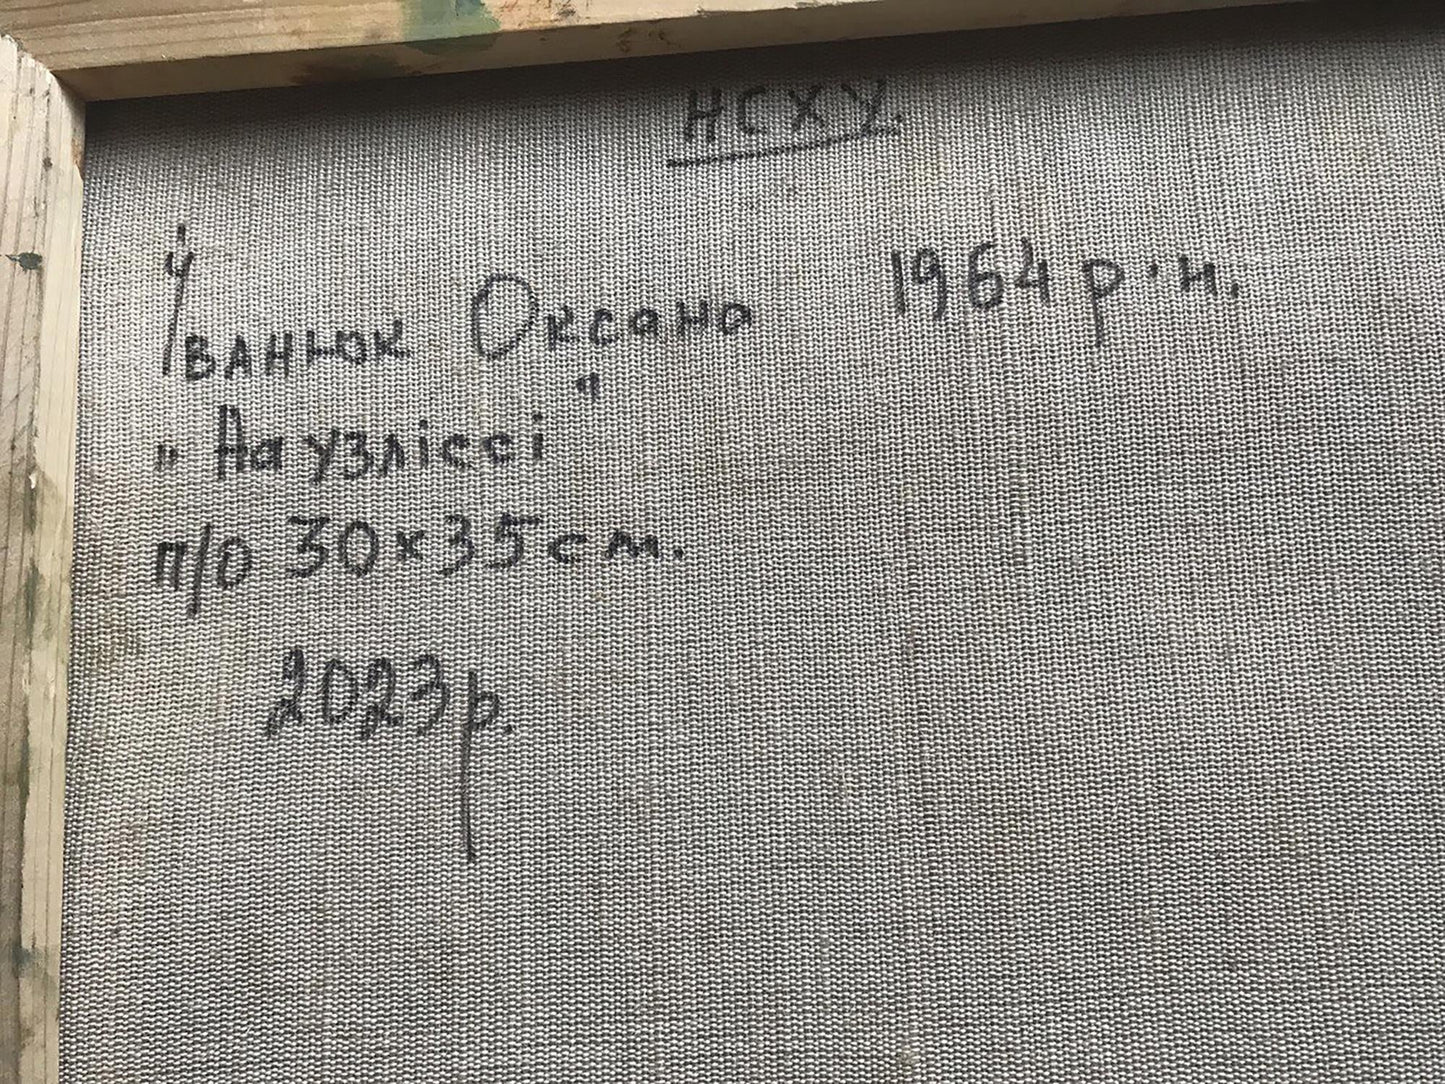 НСХУ.
Іванюк Оксана 1964 р.н.
"На узліссі"
п/о 30х35см.
2023р.